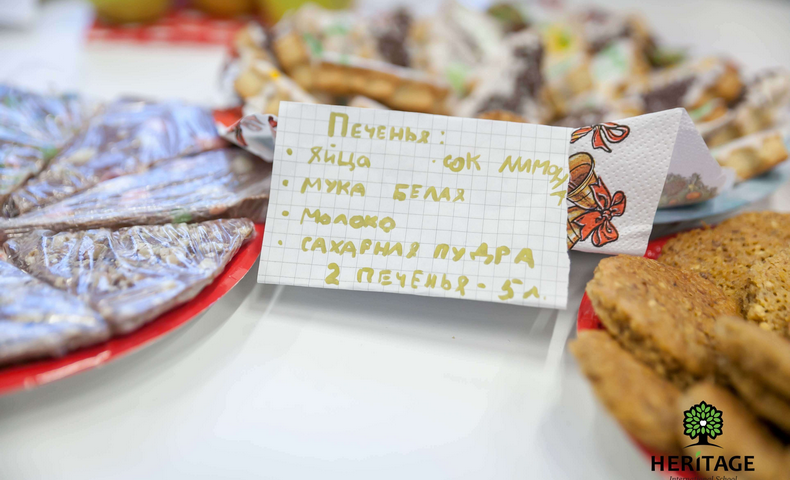 Печенья:
• яйца • сок лимона
• мука белая
• молоко
• сахарная пудра
2 печенья - 5л.
HERITAGE
International School